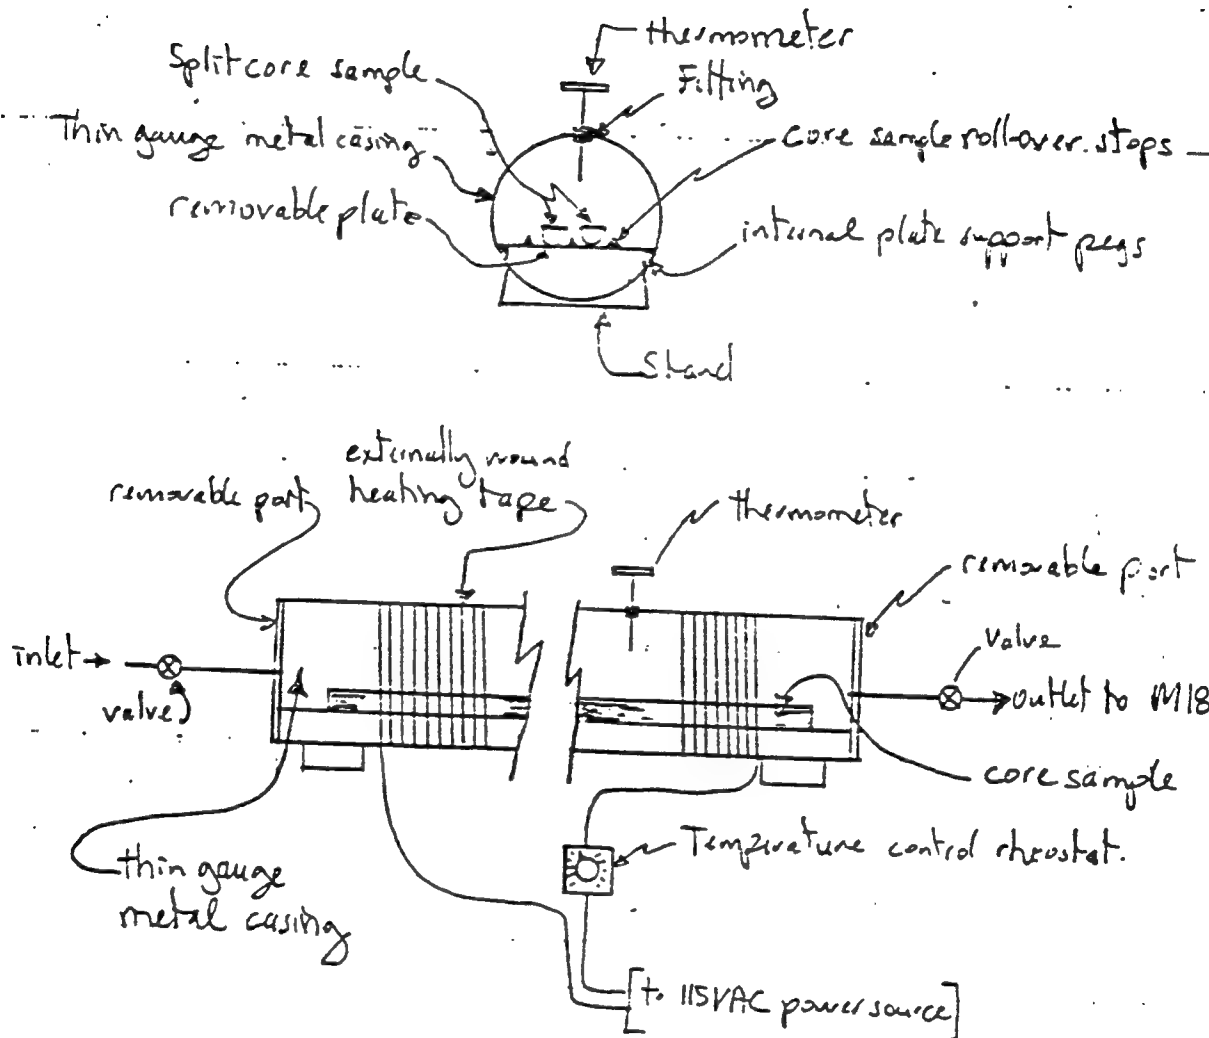 thermometer
Fitting
Split core sample
Thin gauge metal casing
core sample roll-over stops
removable plate
internal plate support pegs
Stand
externally wound
heating tape
removable port
thermometer
removable port
inlet
valve
valve
outlet to M18
core sample
Temperature control rheostat.
thin gauge
metal casing
[to 115VAC power source]